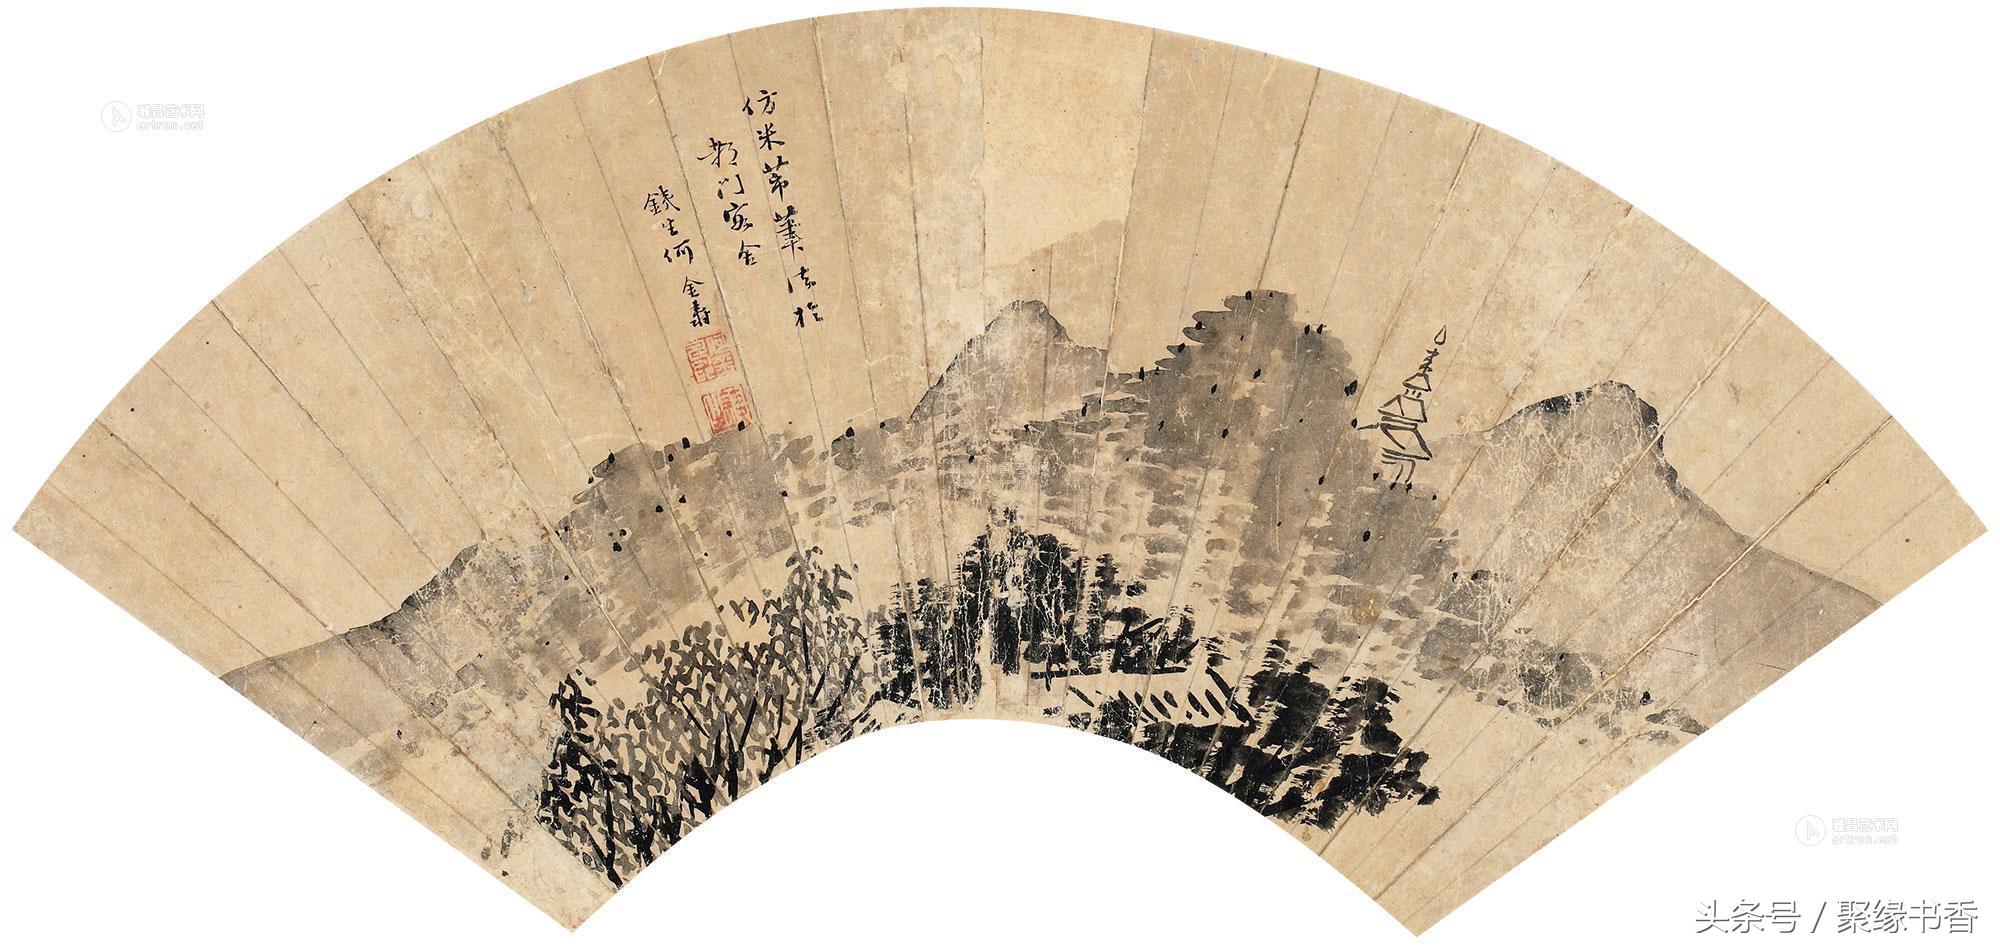 仿米芾筆法於
都門寓舍
銕生何金壽
雅昌艺术网
artron.net
雅昌艺术网
artron.net
头条号 / 聚缘书香